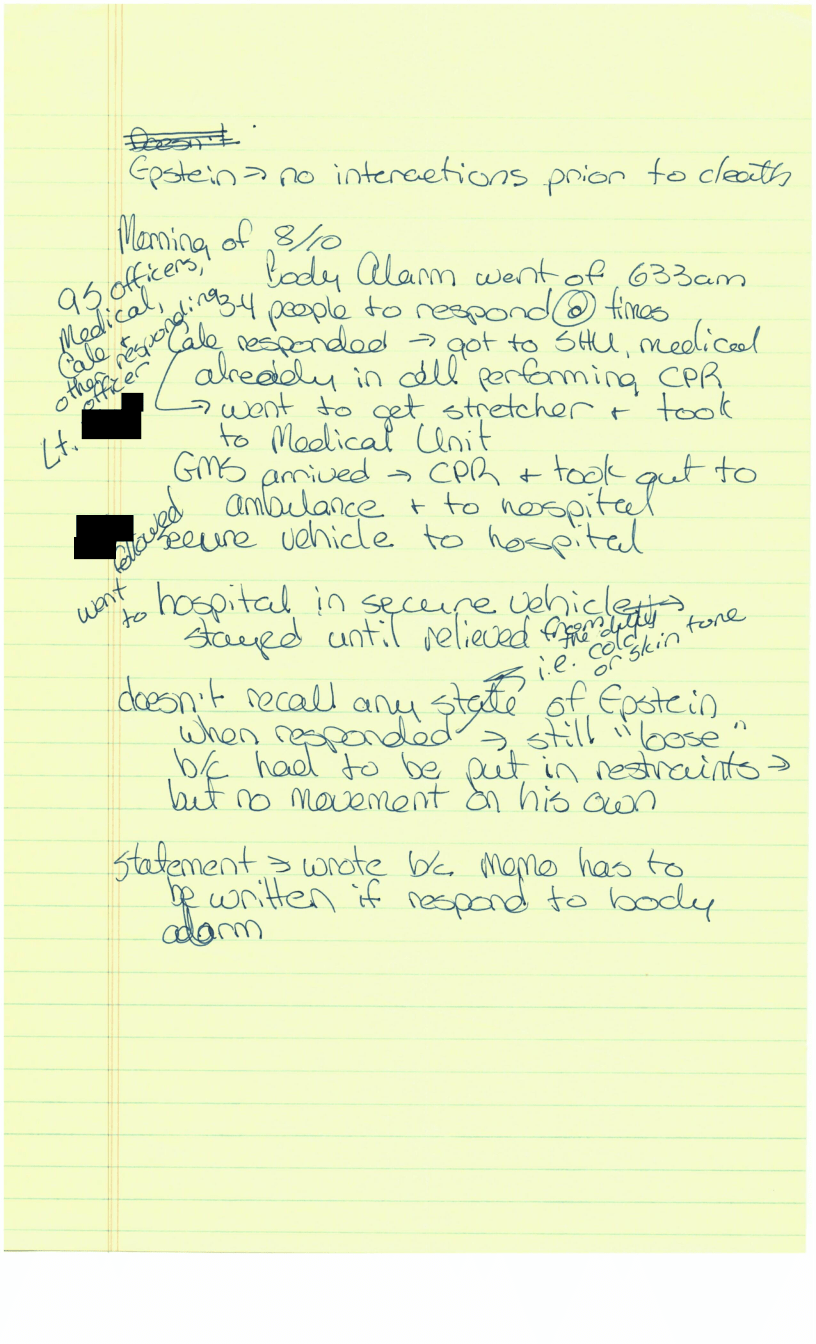 Doesn't
Epstein → no interactions prior to death
Morning of 8/10
Body Alarm went of 633am
3-4 people to respond @ times
Cale responded → got to SHU, medical
already in cell performing CPR
→ went to get stretcher + took
to Medical Unit
officers,
Medical,
Cale +
other responding
officer
Lt.
EMS arrived → CPR + took out to
ambulance + to hospital
followed
secure vehicle to hospital
went
to hospital in secure vehicle →
stayed until relieved
i.e. cold
or skin tone
doesn't recall any state of Epstein
when responded → still "loose"
b/c had to be put in restraints →
but no movement on his own
statement → wrote b/c memo has to
be written if respond to body
alarm